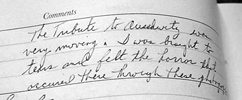 Comments
The tribute to Auschwitz was
very moving. I was brought to
tears and felt the horror that
occured there through these photographs